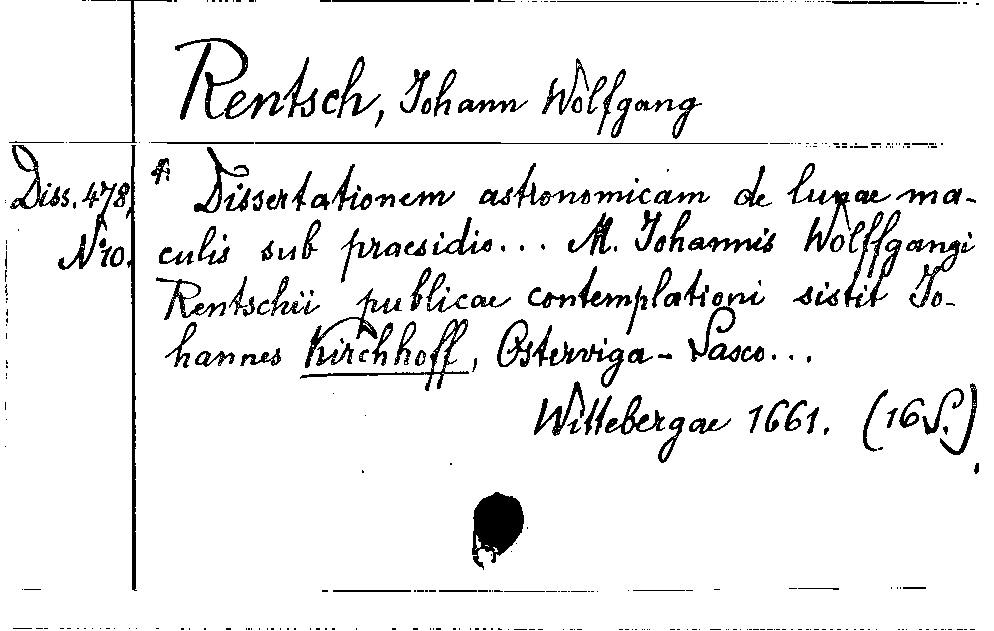 Rentsch, Johann Wolfgang
Diss. 478,
N 10.
Dissertationem astronomicam de lunae ma-
culis sub praesidio... M. Johannis Wolffgangi
Rentschii publicae contemplationi sistit Jo-
hannes Kirchhoff, Osterviga-Saxo...
Wittebergae 1661. (16 S.)